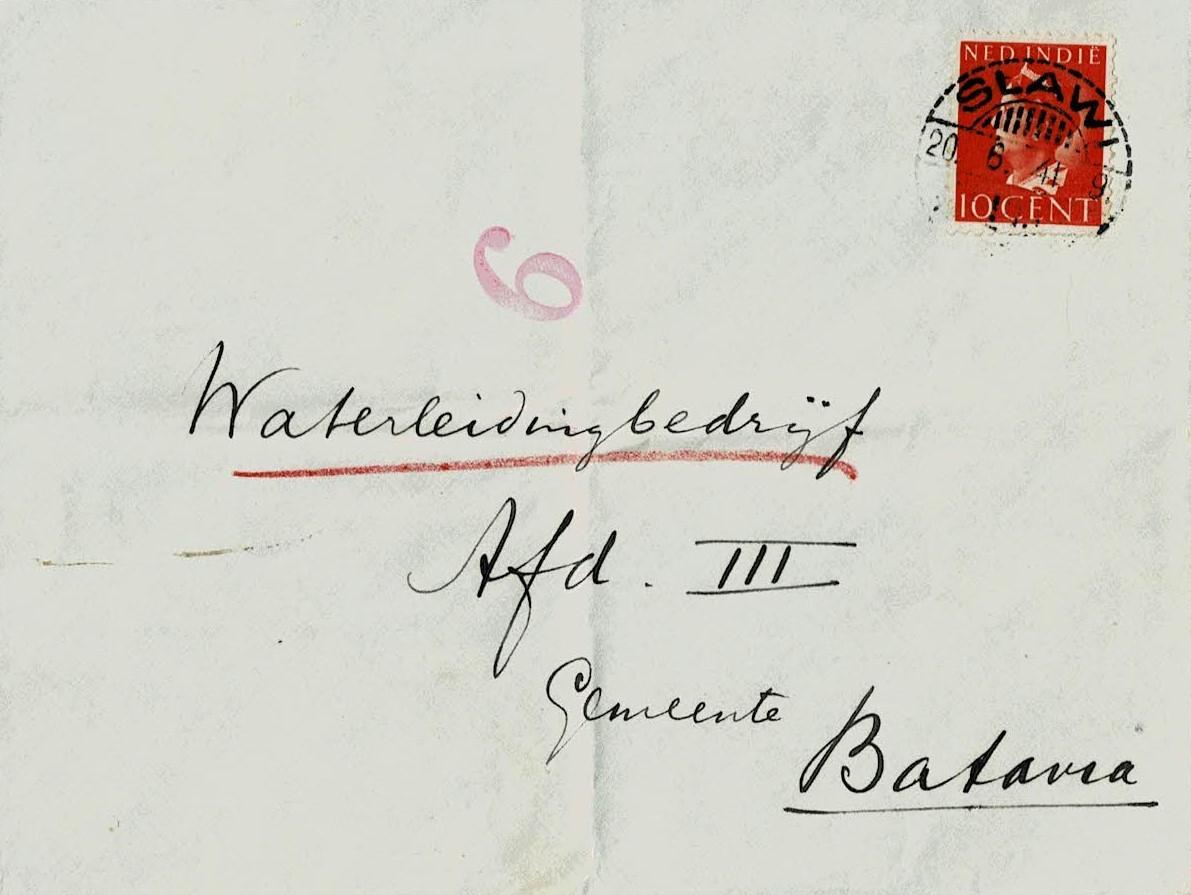 NED. INDIË
SLAWI
20. 6. 41. 9
10 CENT
6
Waterleidingbedrijf
Afd. III
Gemeente
Batavia